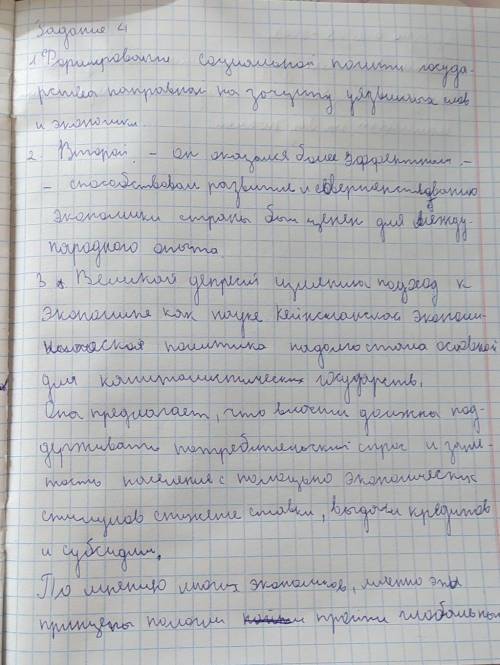 Задание 4
1. Формирование социальной политики госуда-
рства направлен на защиту уязвимых слоев
и экономики.
2. Второй, - он оказался более эффективным, -
- способствовал развитию и совершенствованию
экономики страны был ценен для между-
народного опыта.
3 Великая депрессия изменила подход к
экономике как науке Кейнсианская экономи-
ческая политика надолго стала основной
для капиталистических государств.
Она предлагает, что власти должны под-
держивать потребительский спрос и заня-
тость населения с помощью экономических
стимулов снижение ставки, выдачи кредитов
и субсидии.
По мнению многих экономистов, именно эти
принципы помогли пройти глобальный